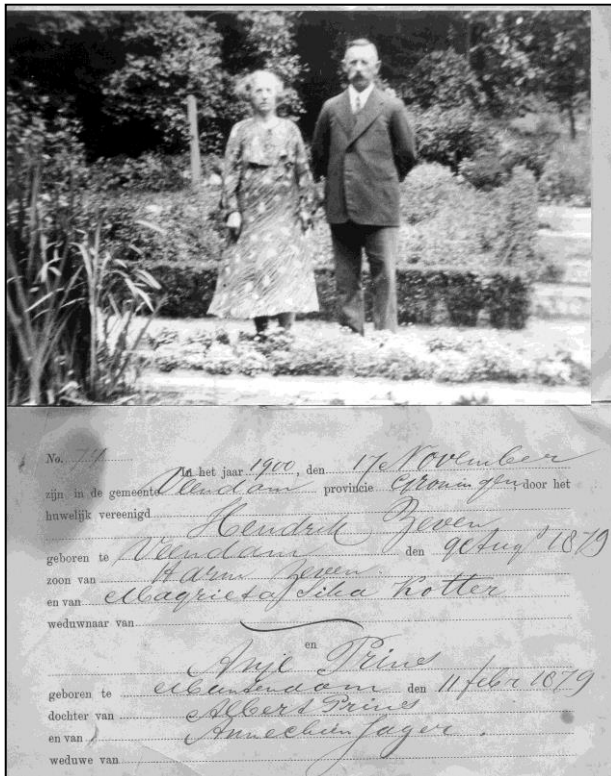 No. 74 In het jaar 1900, den 17 November
zijn in de gemeente Veendam provincie Groningen, door het
huwelijk vereenigd
Hendrik Zeven
geboren te Veendam den 9 Aug 1879
zoon van Harm Zeven.
en van Magrieta Sika Kotter
weduwnaar van
en
Anje Prins
geboren te Muntendam den 11 febr 1879
dochter van Albert Prins
en van Annechien Jager.
weduwe van